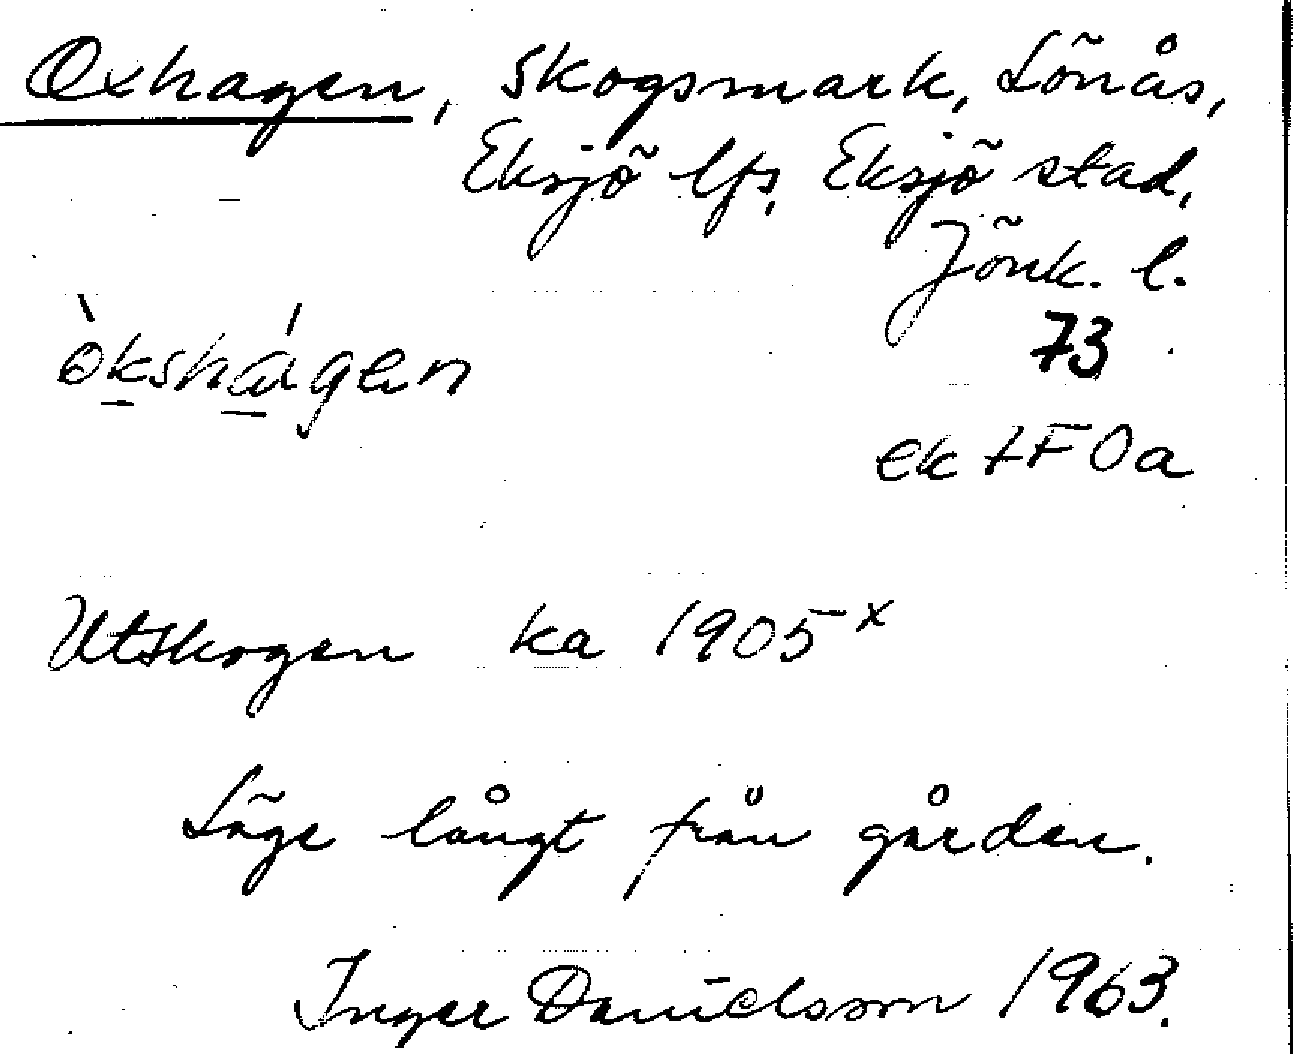 Oxhagen, Skogsmark, Lönås,
Eksjö lfs, Eksjö stad,
Jönk. l.
òkshágen
73
ek 7F0a
Utskogen ka 1905 x
Läge långt från gården.
Inger Danielsson 1963.